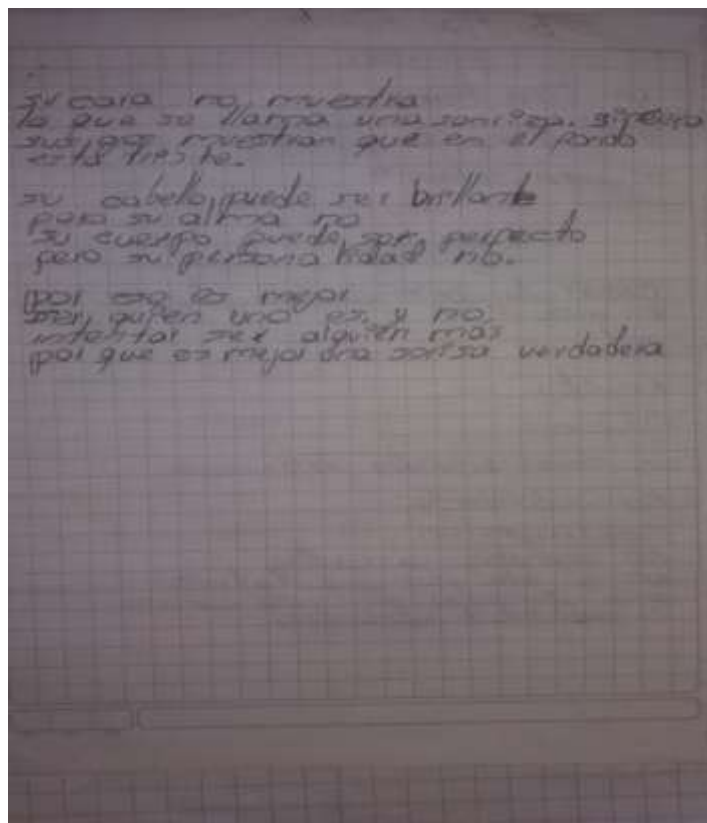 su cara no muestra
lo que se llama una sonrisa. siquiera
sus ojos muestran que en el fondo
está triste.
su cabello, puede ser brillante
pero su alma no
su cuerpo puede ser, perfecto
pero su personalidad no.
por eso es mejor
ser, quien uno es. y no
intentar ser alguien más
por que es mejor una sorisa verdadera